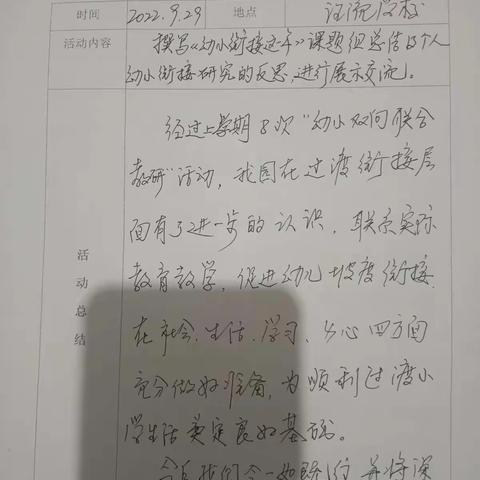 时间 2022.9.29 地点 证况学校
活动内容 撰写《幼小衔接这年》课题组总结及个人
幼小衔接研究的反思,进行展示交流。
经过上学期8次“幼小双向联合
教研”活动,我园在过渡衔接层
面有了进一步的认识,联系实际
教育教学,促进幼儿坡度衔接.
在社会.生活.学习.身心四方面
充分做好准备,为顺利过渡小
学生活奠定良好基础。
活动总结
今后我们会一如既往 并将深